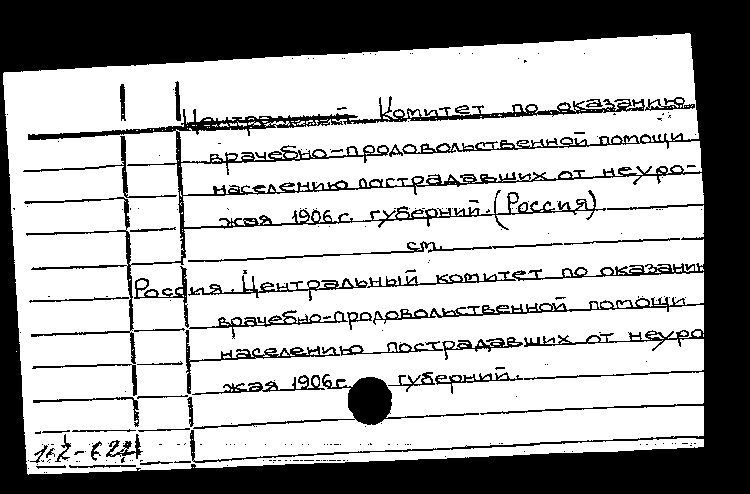 Центральный Комитет по оказанию
врачебно-продовольственной помощи
населению пострадавших от неуро-
жая 1906 г. губерний. (Россия)
см.
Россия. Центральный комитет по оказанию
врачебно-продовольственной помощи
населению пострадавших от неуро
жая 1906 г. губерний.